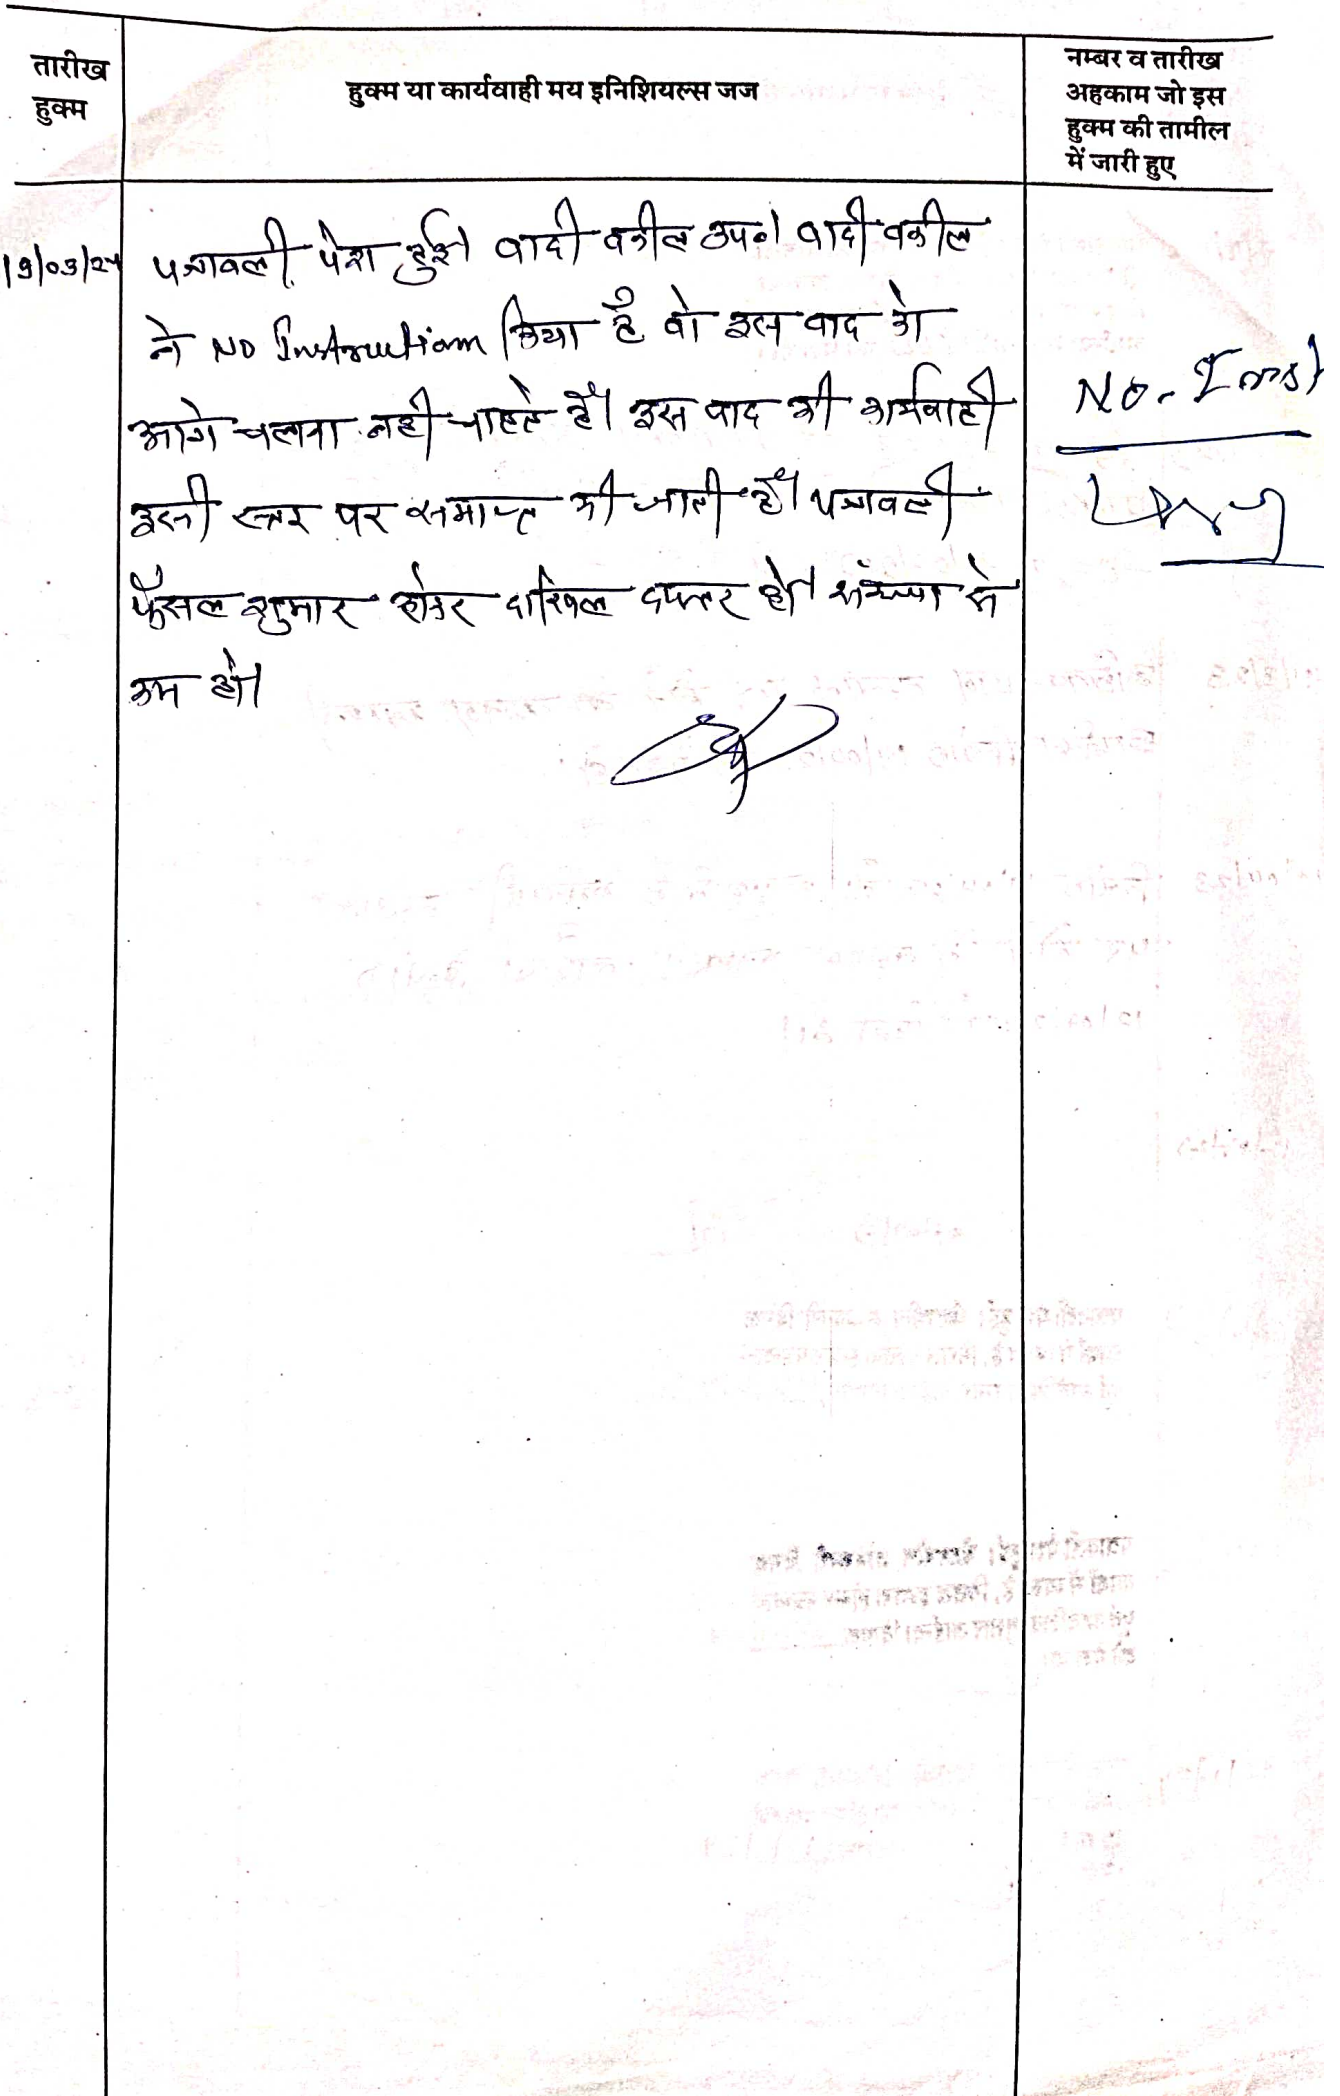 तारीख
हुक्म
हुक्म या कार्यवाही मय इनिशियल्स जज
नम्बर व तारीख
अहकाम जो इस
हुक्म की तामील
में जारी हुए
19/03/24
पत्रावली पेश हुई। वादी वकील उप०। वादी वकील
ने No Instruction किया है वो इस वाद को
आगे चलाना नही चाहते है। इस वाद की कार्यवाही
इसी स्तर पर समाप्त की जाती है। पत्रावली
फैसल शुमार होकर दाखिल दफ्तर हो। संख्या से
कम हो।
No. Inst